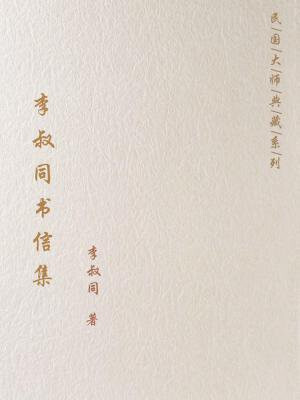 民国大师典藏系列
李叔同书信集
李叔同 著